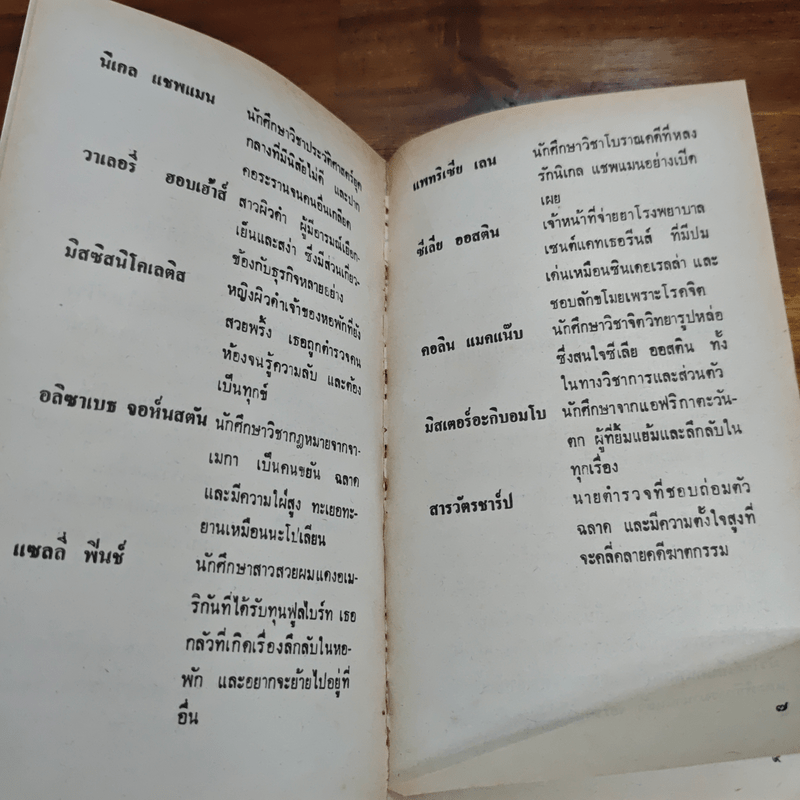 นิเกล แชพแมน
นักศึกษาวิชาประวัติศาสตร์ยุค
กลางที่มีนิสัยไม่ดี และปาก
คอระรานจนคนอื่นเกลียด
วาเลอรี่ ฮอบเฮ้าส์
สาวผิวดำ ผู้มีอารมณ์เยือก-
เย็นและสง่า ซึ่งมีส่วนเกี่ยว-
ข้องกับธุรกิจหลายอย่าง
มิสซิสนิโคเลติส
หญิงผิวดำเจ้าของหอพักที่ยัง
สวยพริ้ง เธอถูกตำรวจค้น
ห้องจนรู้ความลับ และต้อง
เป็นทุกข์
อลิซาเบธ จอห์นสตัน
นักศึกษาวิชากฎหมายจากจา-
เมกา เป็นคนขยัน ฉลาด
และมีความใฝ่สูง ทะเยอทะ-
ยานเหมือนนะโปเลียน
แซลลี่ ฟินช์
นักศึกษาสาวสวยผมแดงอเม-
ริกันที่ได้รับทุนฟูลไบร์ท เธอ
กลัวที่เกิดเรื่องลึกลับในหอ-
พัก และอยากจะย้ายไปอยู่ที่
อื่น
แพทริเซีย เลน
นักศึกษาวิชาโบราณคดีที่หลง
รักนิเกล แชพแมนอย่างเปิด
เผย
ซีเลีย ออสติน
เจ้าหน้าที่จ่ายยาโรงพยาบาล
เซนต์แคทเธอรีนส์ ที่มีปม
เด่นเหมือนซินเดอเรลล่า และ
ชอบลักขโมยเพราะโรคจิต
คอลิน แมคแน็บ
นักศึกษาวิชาจิตวิทยารูปหล่อ
ซึ่งสนใจซีเลีย ออสติน ทั้ง
ในทางวิชาการและส่วนตัว
มิสเตอร์อะกิบอมโบ
นักศึกษาจากแอฟริกาตะวัน-
ตก ผู้ที่ยิ้มแย้มและลึกลับใน
ทุกเรื่อง
สารวัตรชาร์ป
นายตำรวจที่ชอบถ่อมตัว
ฉลาด และมีความตั้งใจสูงที่
จะคลี่คลายคดีฆาตกรรม
๗